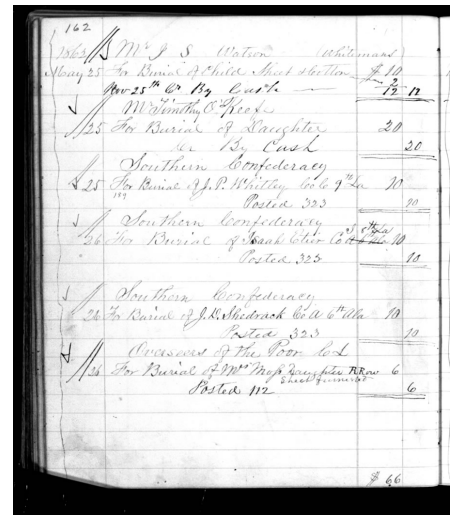 162
1863 Mr J S Watson (Whitemans)
May 25 For Burial of Child Street bottom $ 10
2
Nov 25th Cr By Cash 12 12
Mr Timothy O Keefe
25 For Burial of Daughter 20
Cr By Cash 20
Southern Confederacy
25 For Burial of J. P. Whitley Co C 9th La 10
119
Posted 323 10
Southern Confederacy
26 For Burial of Isaah Co 10
Posted 323 10
Southern Confederacy
26 For Burial of J. D. Shedrack Co A 6th Ala 10
Posted 323 10
Overseers of the Poor
26 For Burial of Mrs Daughter R Row 6
furnished
Posted 112 6
$ 66